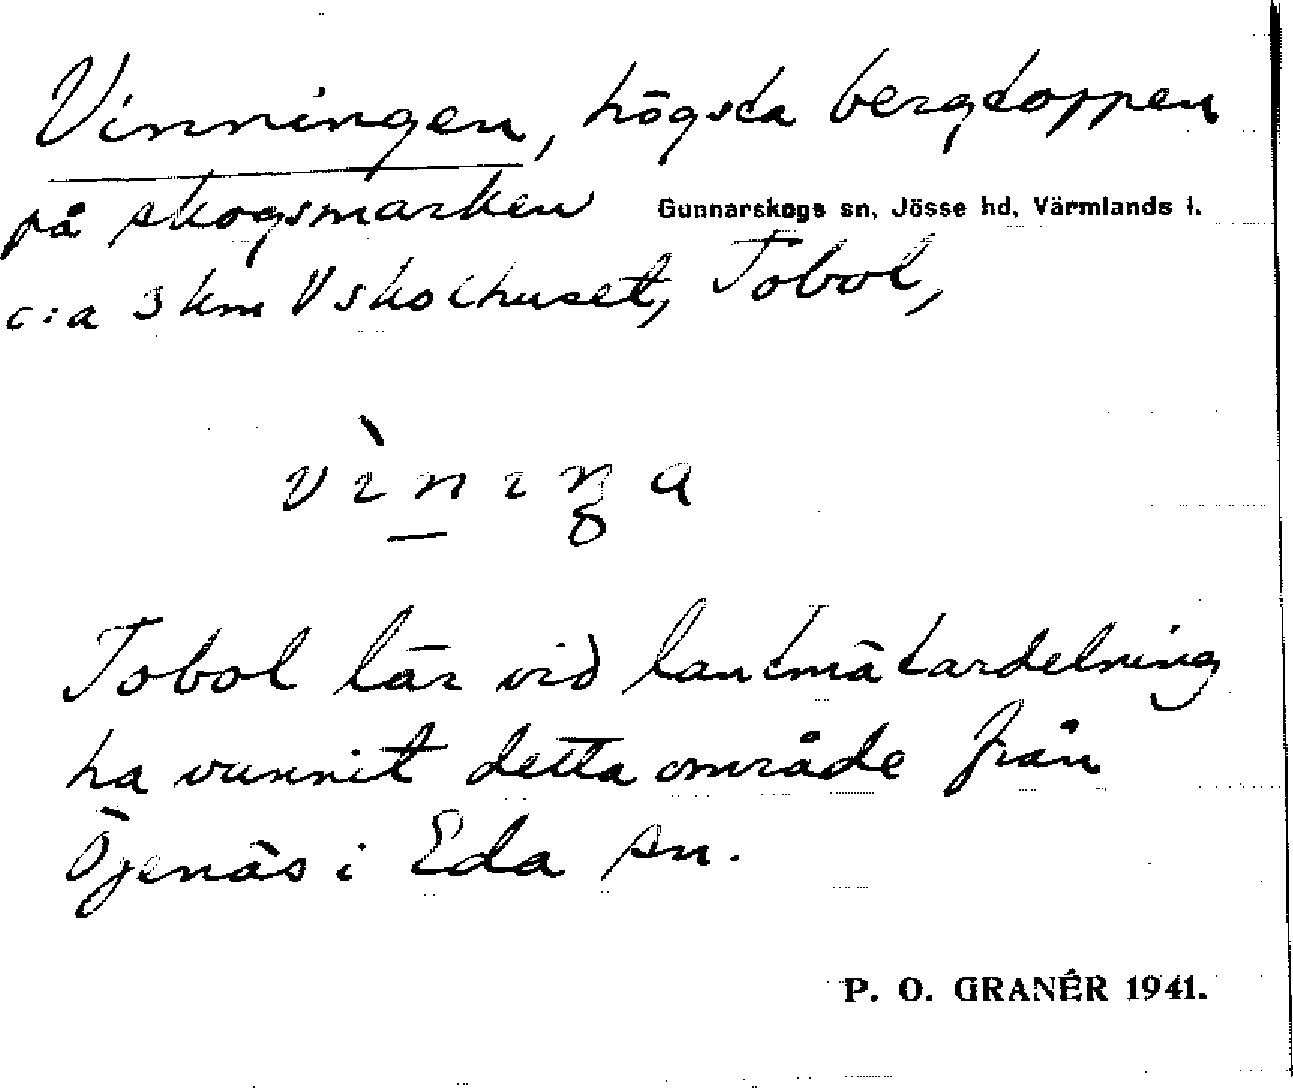 Vinningen, högsta bergtoppen
på skogsmarken
Gunnarskogs sn, Jösse hd, Värmlands l.
c:a 3 km V skolhuset, Tobol,
Tobol lär vid lantmätardelning
ha vunnit detta område från
Öjenäs i Eda sn.
P. O. GRANÉR 1941.